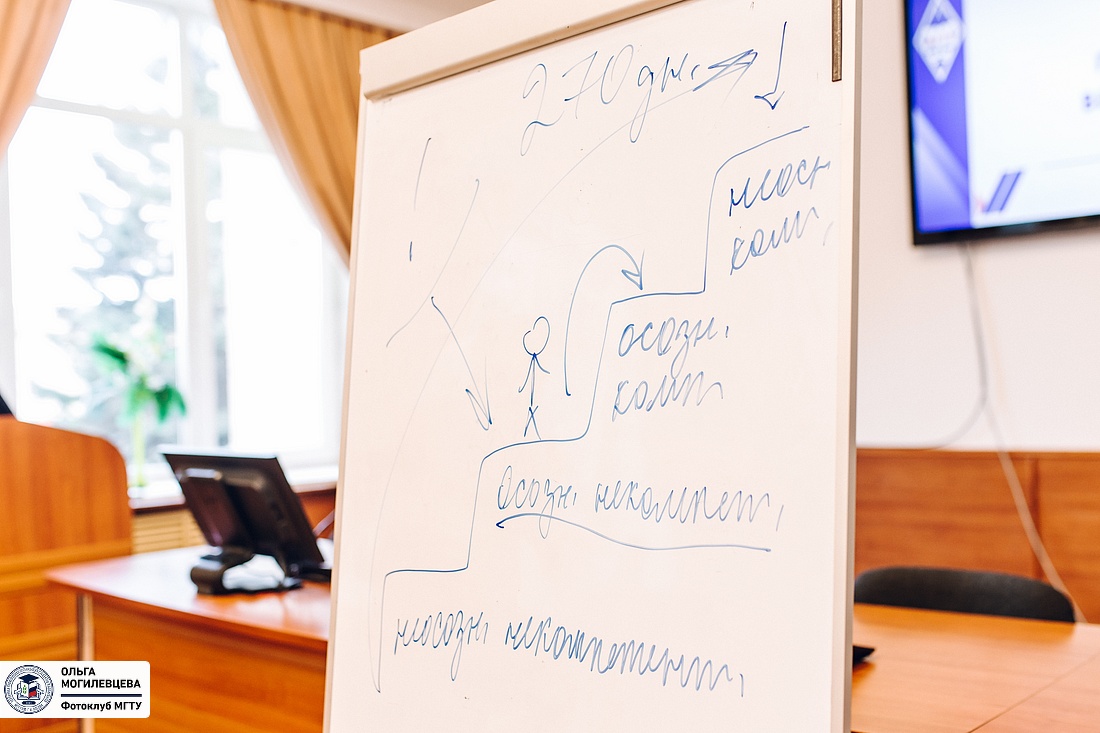 270 дн.
неосн
комп.
осозн.
комп
Осозн. некомпет.
неосозн. некомпетент.
ОЛЬГА
МОГИЛЕВЦЕВА
Фотоклуб МГТУ